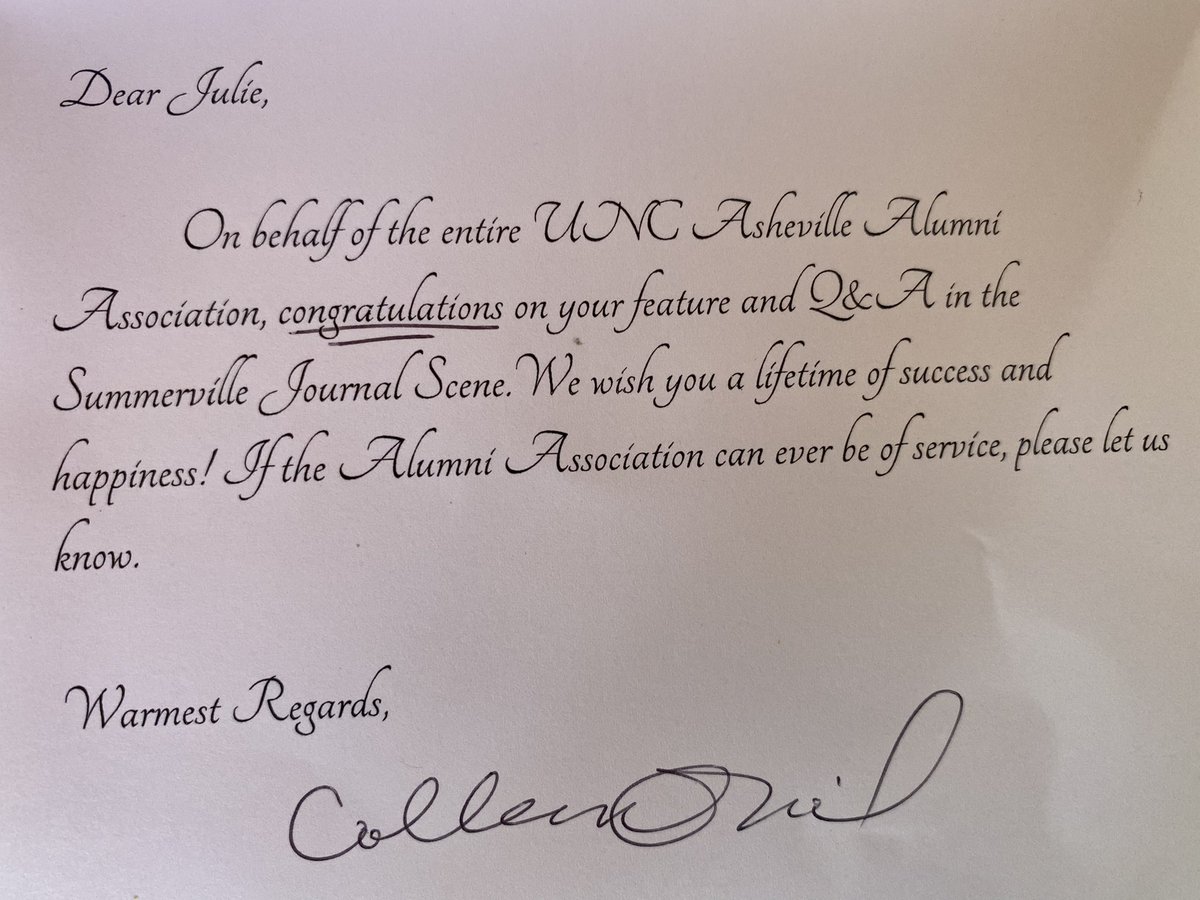 Dear Julie,
On behalf of the entire UNC Asheville Alumni
Association, congratulations on your feature and Q&A in the
Summerville Journal Scene. We wish you a lifetime of success and
happiness! If the Alumni Association can ever be of service, please let us
know.
Warmest Regards,
Colleen